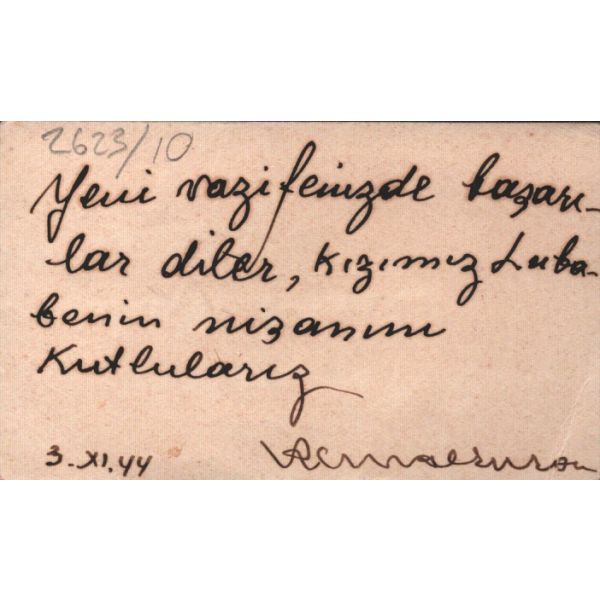 2623/10
Yeni vazifenizde başarı-
lar diler, kızımız Luba-
benin nişanını
Kutlularız
3. XI. 44